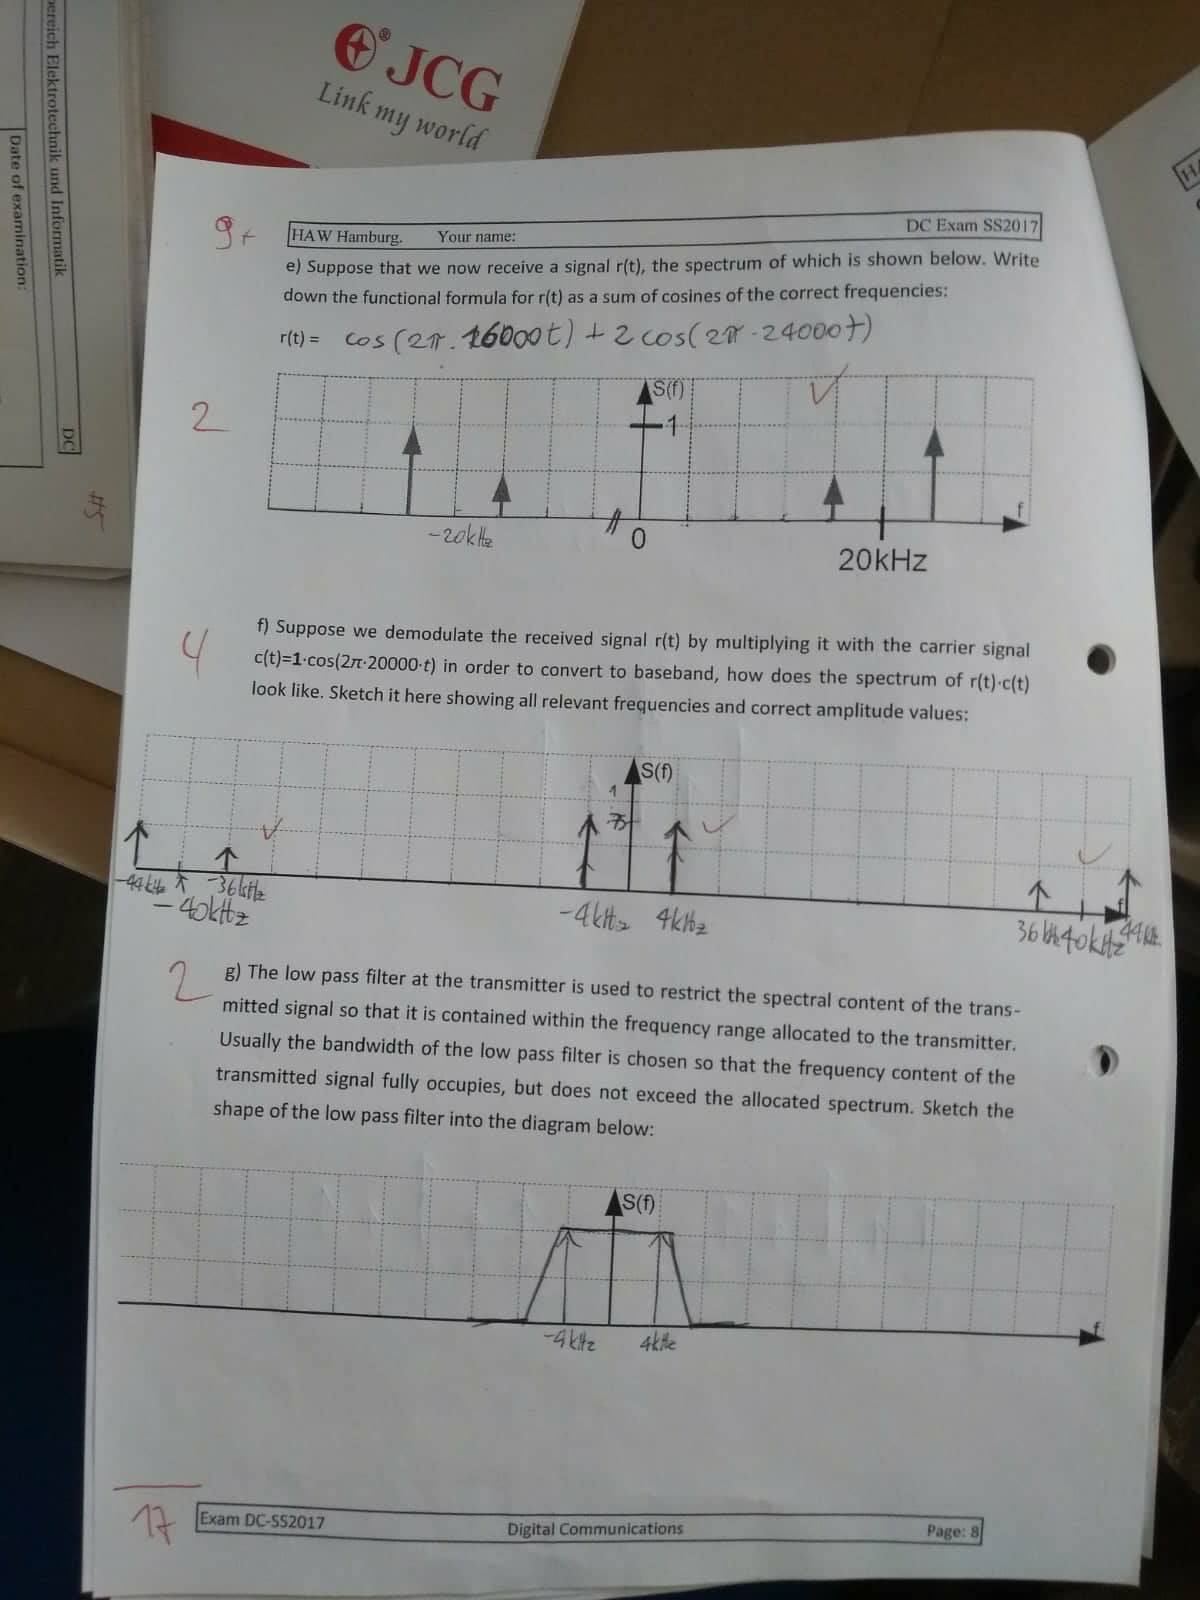 ® JCG
Link my world
bereich Elektrotechnik und Informatik
Date of examination:
DC
9+
HAW Hamburg. Your name: DC Exam SS2017
e) Suppose that we now receive a signal r(t), the spectrum of which is shown below. Write
down the functional formula for r(t) as a sum of cosines of the correct frequencies:
r(t) = cos(2π·16000t) + 2cos(2π·24000t)
2
S(f)
1
-20kHz
0
20kHz
f
4
f) Suppose we demodulate the received signal r(t) by multiplying it with the carrier signal
c(t)=1·cos(2π·20000·t) in order to convert to baseband, how does the spectrum of r(t)·c(t)
look like. Sketch it here showing all relevant frequencies and correct amplitude values:
S(f)
1
f
-44kHz -36kHz
-40kHz
-4kHz 4kHz
36kHz 40kHz 44kHz
2
g) The low pass filter at the transmitter is used to restrict the spectral content of the trans-
mitted signal so that it is contained within the frequency range allocated to the transmitter.
Usually the bandwidth of the low pass filter is chosen so that the frequency content of the
transmitted signal fully occupies, but does not exceed the allocated spectrum. Sketch the
shape of the low pass filter into the diagram below:
S(f)
f
-4kHz 4kHz
17
Exam DC-SS2017 Digital Communications Page: 8